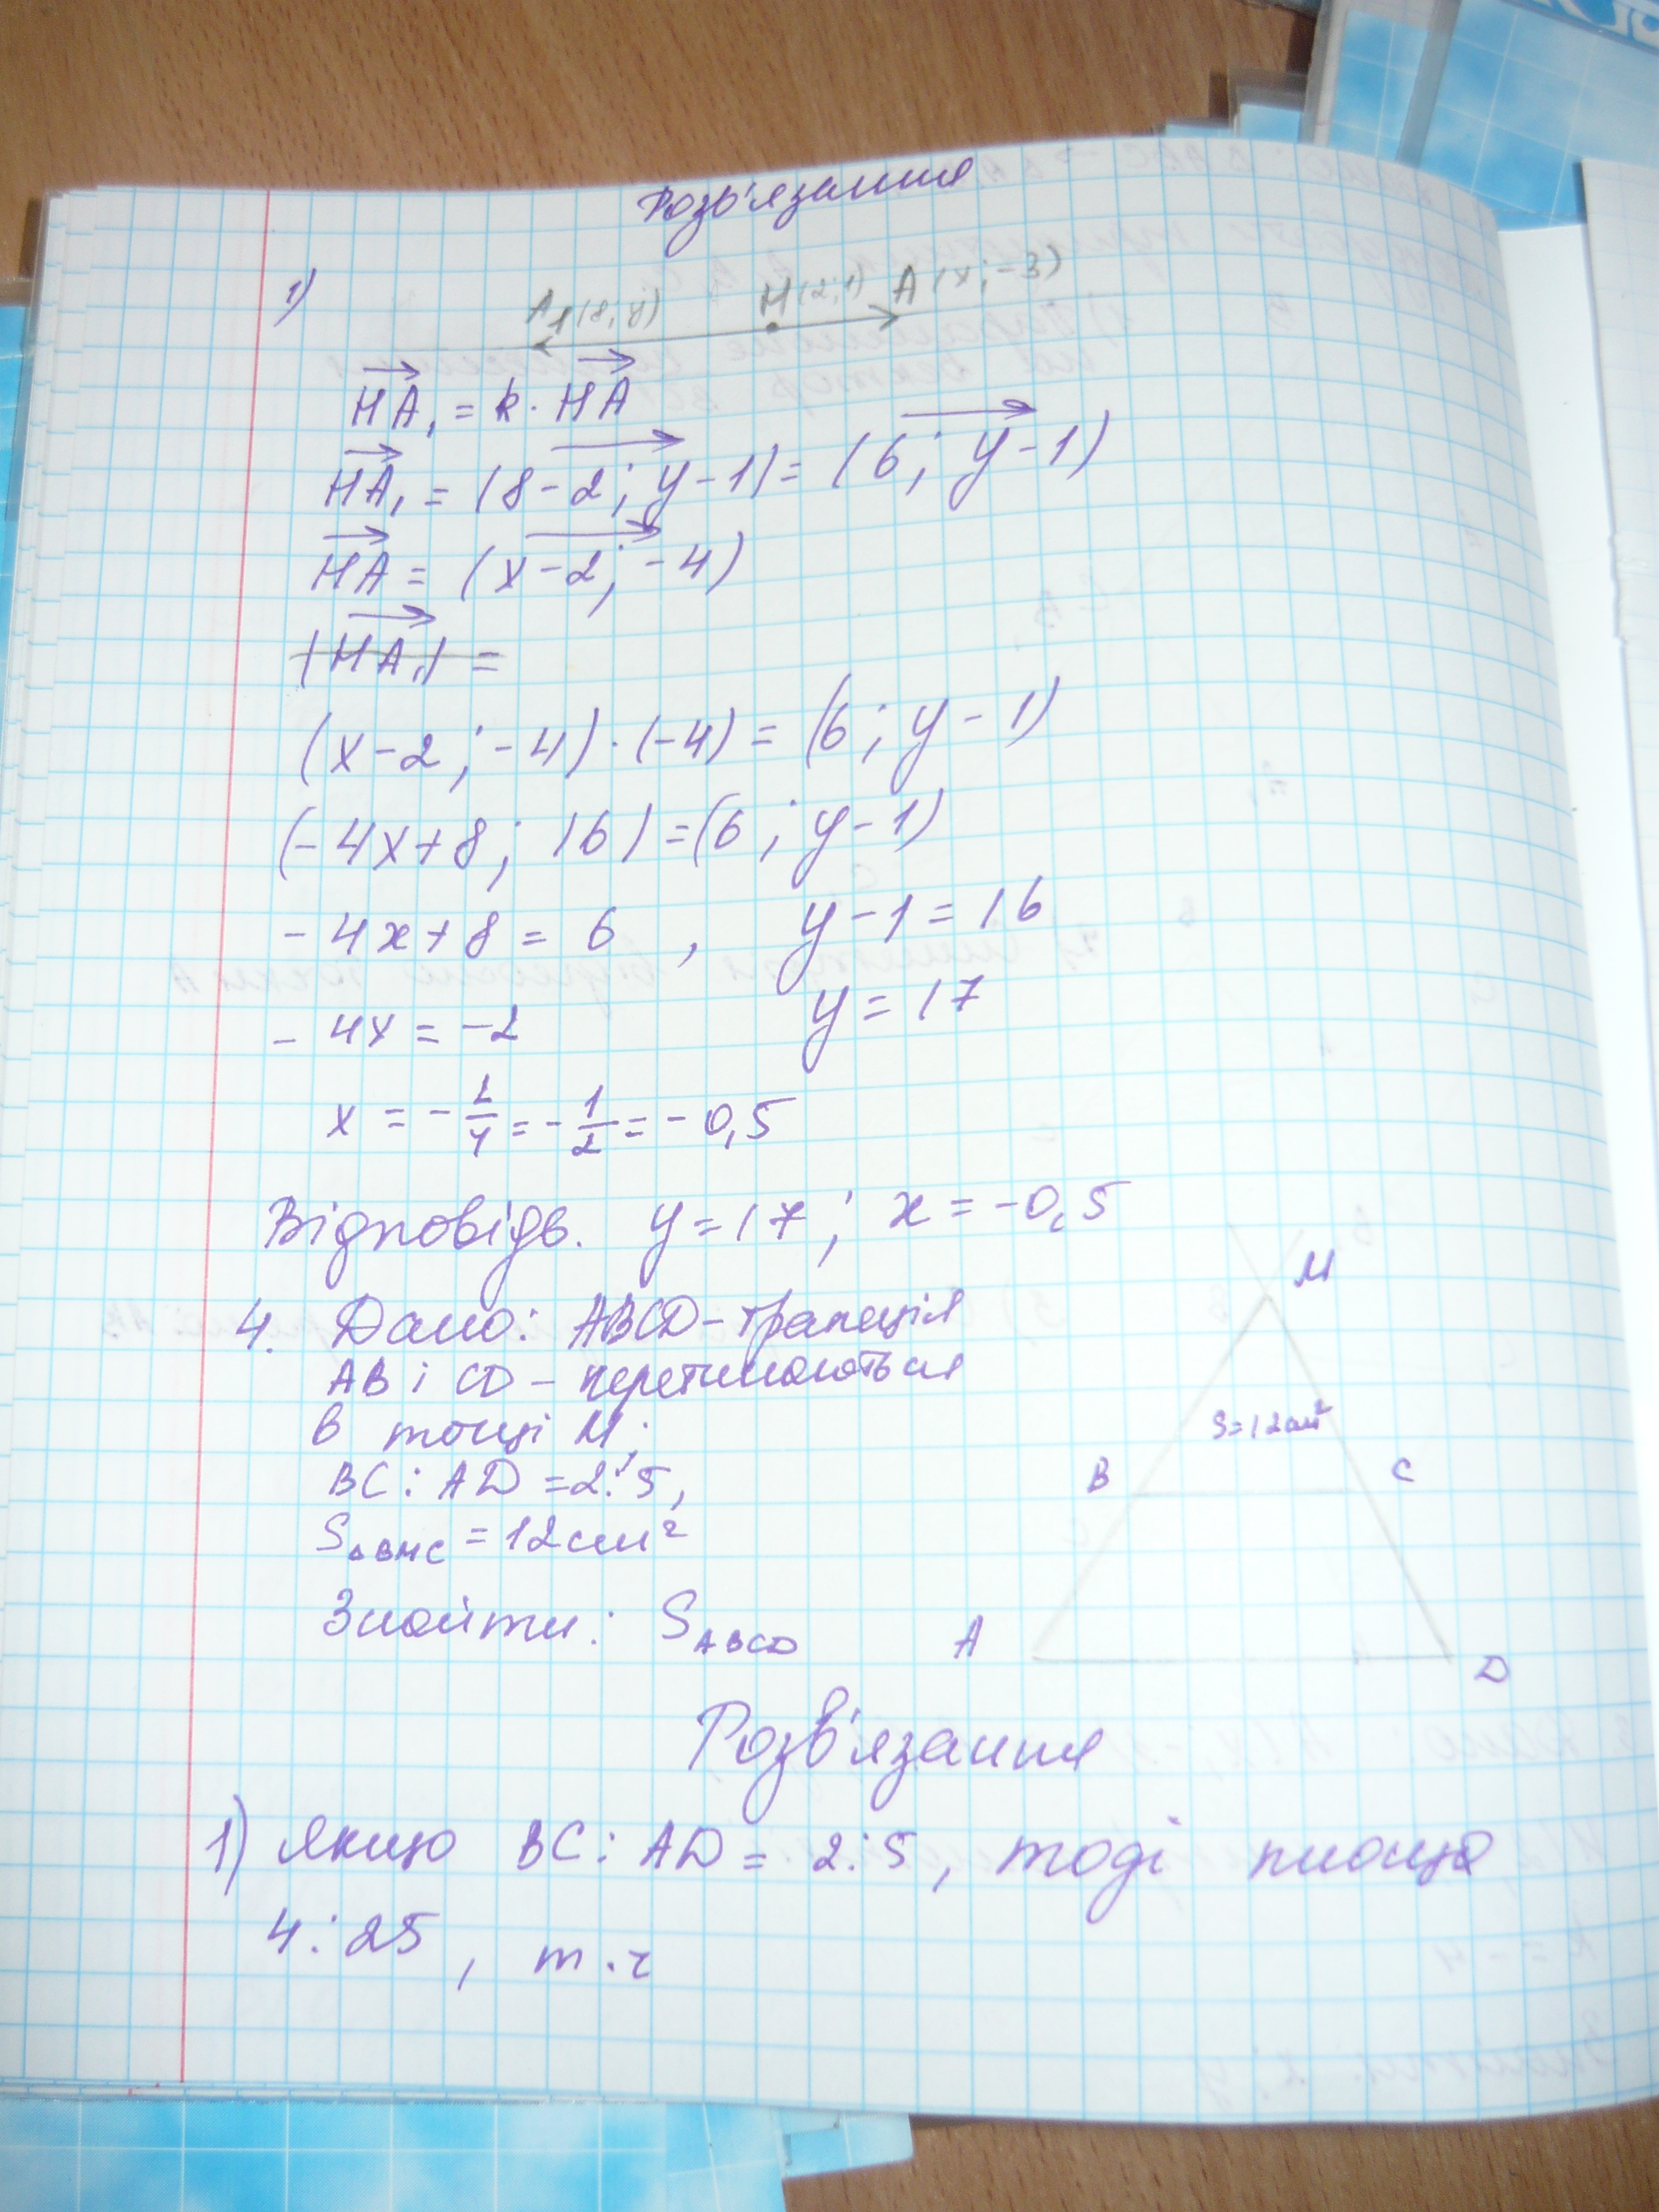 Розв'язання
1)
A₁(8; y) H(2; 1) A(x; -3)
HA₁ = k · HA
HA₁ = (8-2; y-1) = (6; y-1)
HA = (x-2; -4)
|HA₁| =
(x-2; -4)·(-4) = (6; y-1)
(-4x+8; 16) = (6; y-1)
-4x+8 = 6, y-1 = 16
-4x = -2 y = 17
x = -2/4 = -1/2 = -0,5
Відповідь. y=17; x=-0,5
4. Дано: ABCD-трапеція
AB і CD - перетинаються
в точці M;
BC : AD = 2:5,
S△BMC = 12см²
Знайти: S ABCD
M
S=12см²
B C
A D
Розв'язання
1) Якщо BC : AD = 2:5, тоді площа
4:25, т.ч